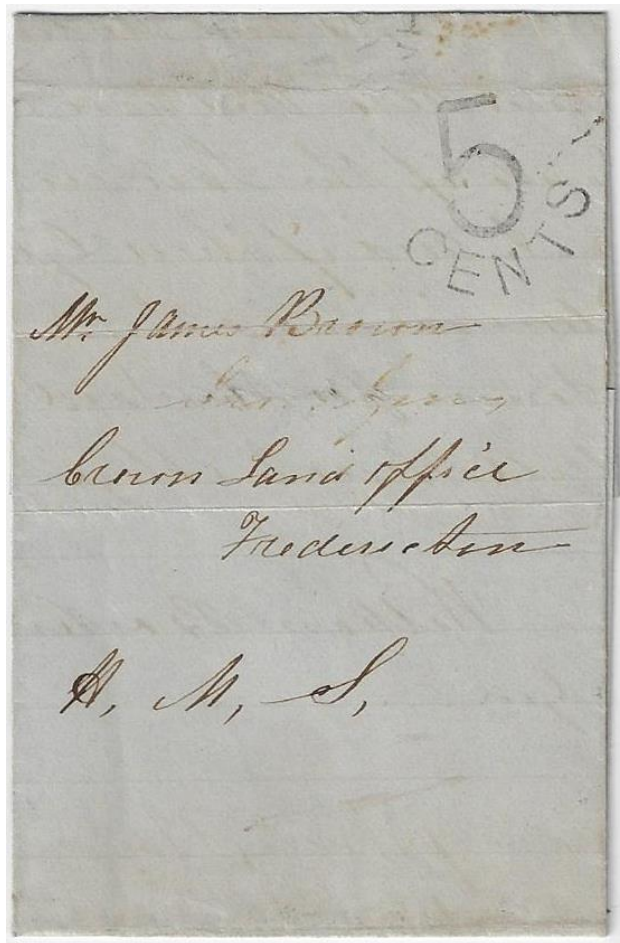 5
CENTS
Mr James Brown
Crown Land office
Fredericton
H. M. S,